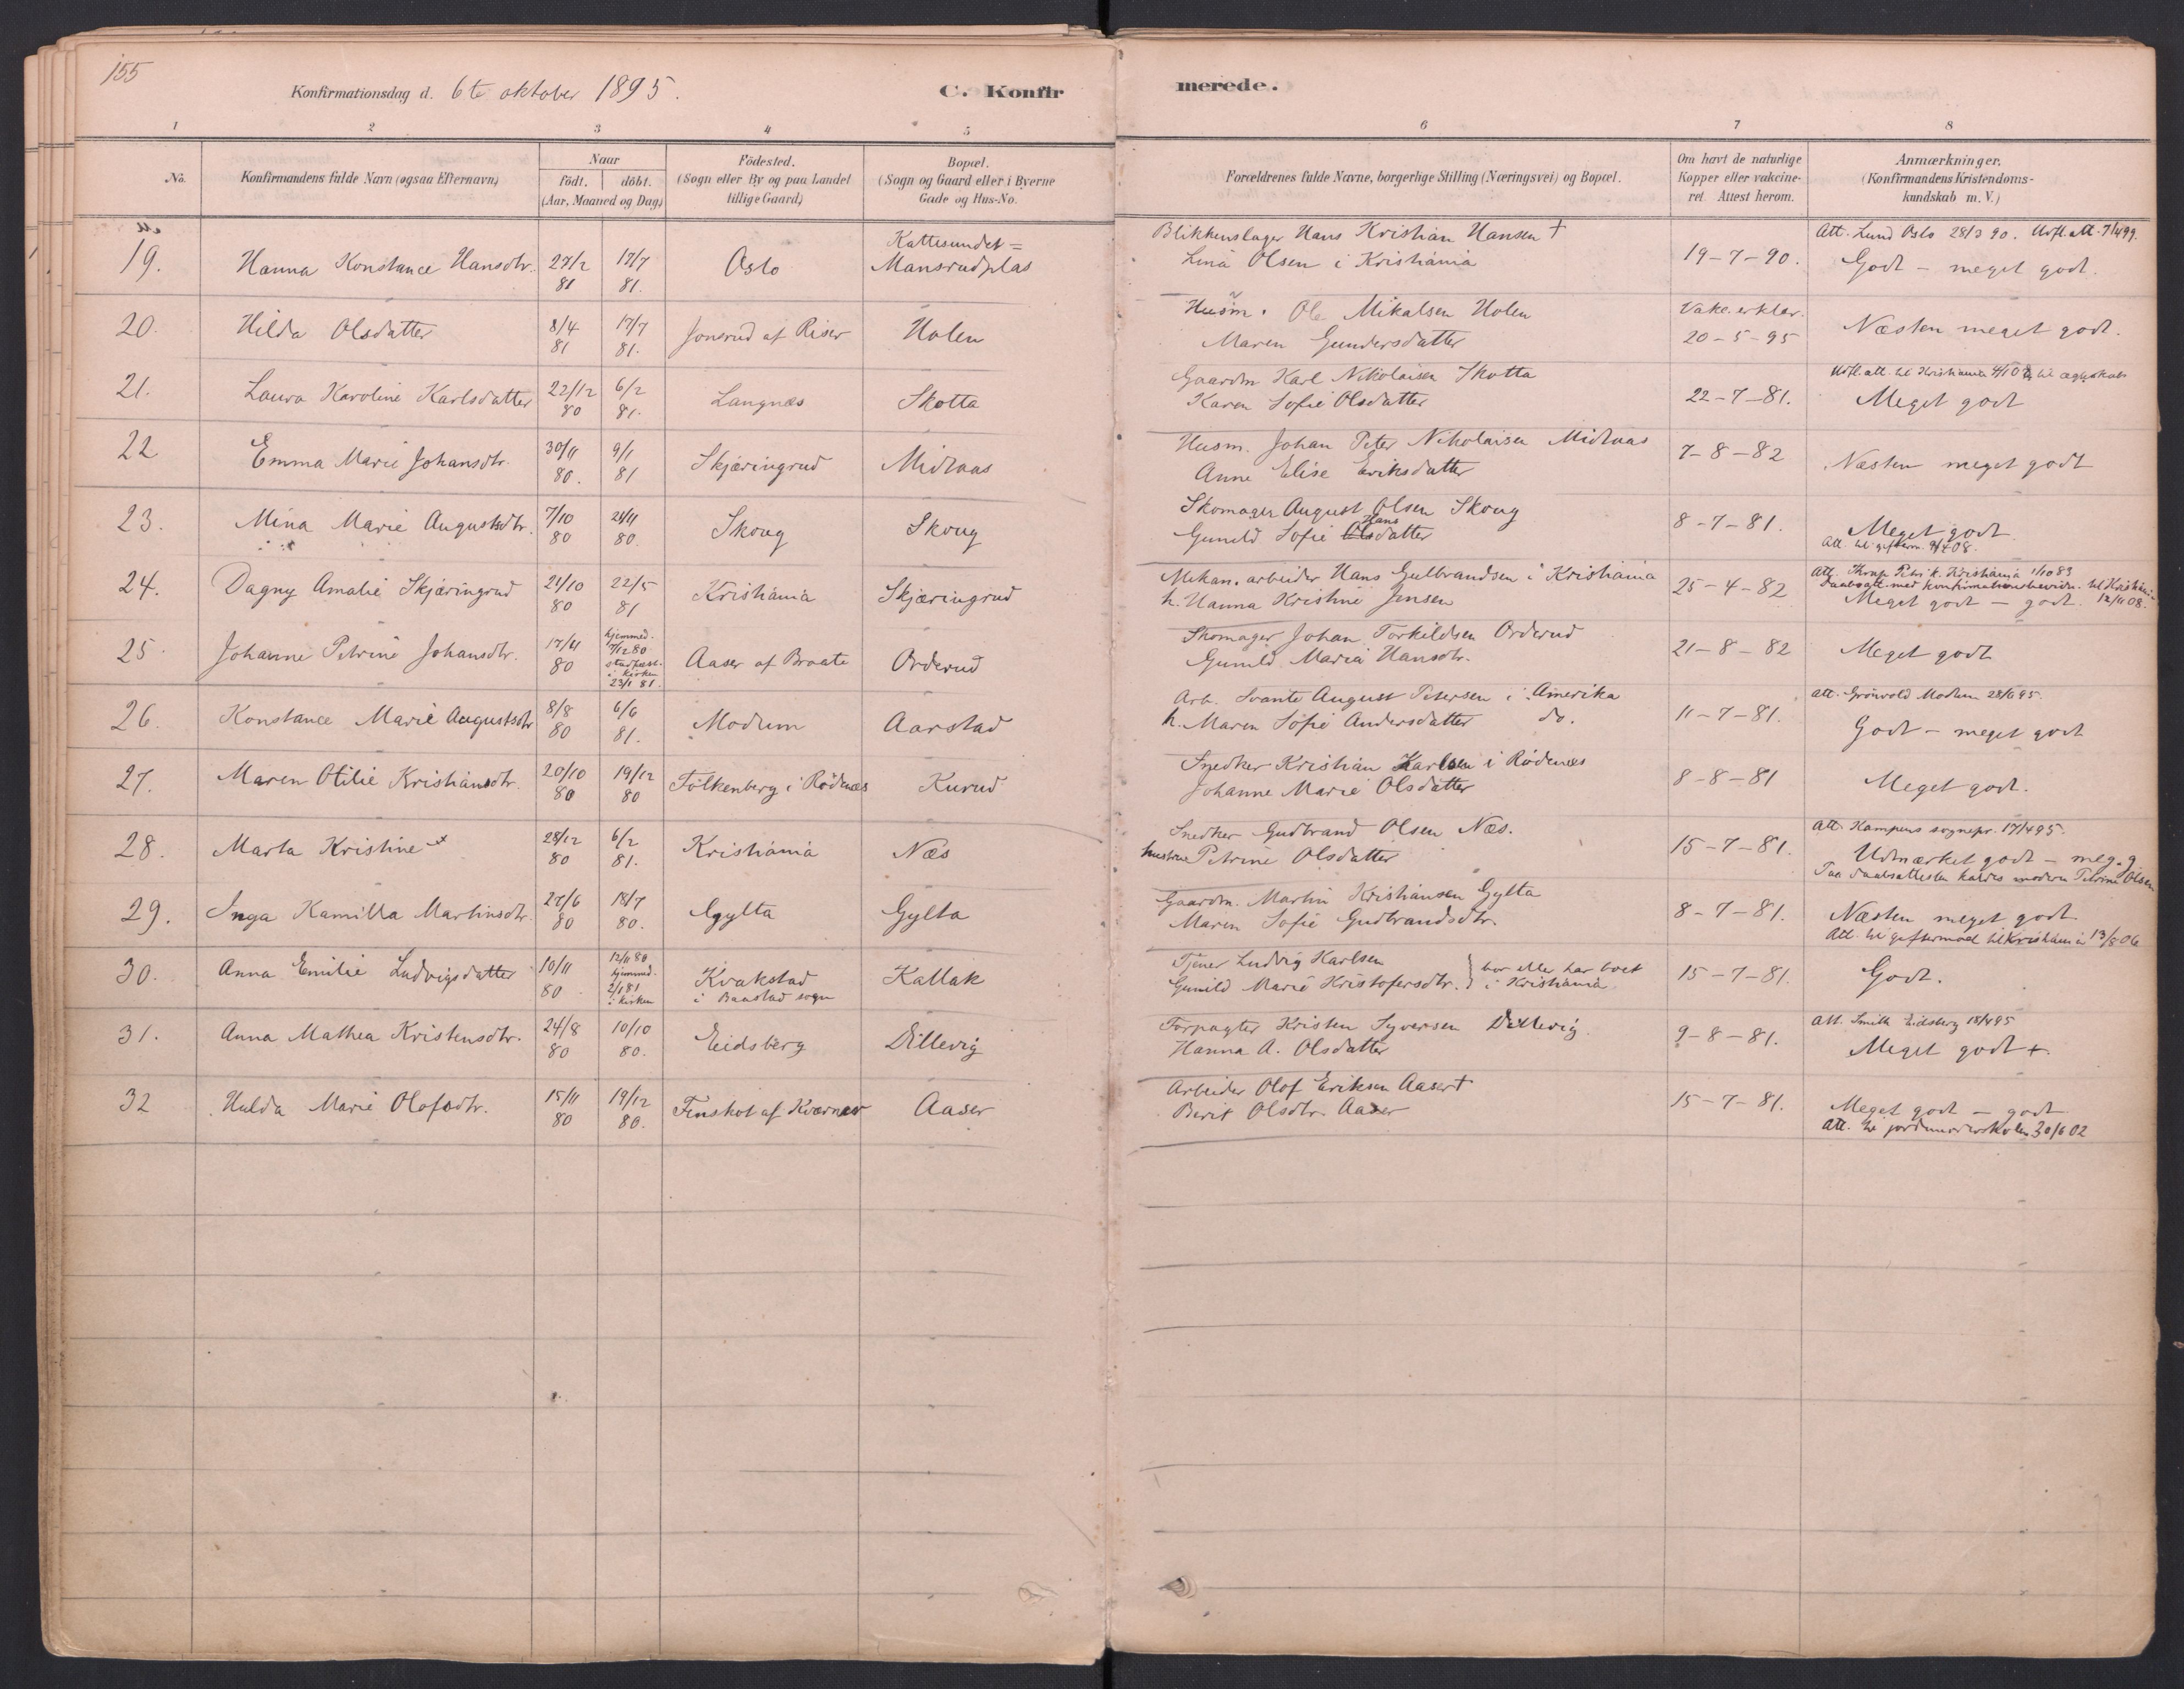 155
Konfirmationsdag d. 6te oktober 1895.
C. Konfirmerede.
1 2 3 4 5 6 7 8
No.
Konfirmandens fulde Navn (ogsaa Efternavn)
Naar
födt. döbt.
(Aar, Maaned og Dag)
Födested.
(Sogn eller By og paa Landet
tillige Gaard)
Bopæl.
(Sogn og Gaard eller i Byerne
Gade og Hus-No.
Forældrenes fulde Navne, borgerlige Stilling (Næringsvei) og Bopæl.
Om havt de naturlige
Kopper eller vakcine-
ret. Attest herom.
Anmærkninger.
(Konfirmandens Kristendoms-
kundskab m. V.)
19. Hanna Konstance Hansdtr. 27/2 81 17/7 81. Oslo
Kattesundet =
Mansrudplas
Blikkenslager Hans Kristian Hansen †
Lina Olsen i Kristiania
19-7-90.
Att. Lund Oslo 28/3 90. Udfl. att. 7/4 99.
Godt - meget godt.
20. Hilda Olsdatter 8/4 81 17/7 81. Jonsrud af Riser Holen
Husm. Ole Mikalsen Holen
Maren Gundersdatter
Vakc. erklær.
20-5-95
Næsten meget godt.
21. Laura Karoline Karlsdatter 22/12 80 6/2 81. Langnæs Skotta
Gaardm Karl Nikolaisen Skotta
Karen Sofie Olsdatter
22-7-81.
Udfl. att. til Kristiania
Meget godt
22 Emma Marie Johansdtr. 30/11 80. 9/1 81 Skjæringrud Midtaas
Husm. Johan Peter Nikolaisen Midtaas
Anne Elise Eriksdatter
7-8-82
Næsten meget godt
23. Mina Marie Augustsdtr. 7/10 80 21/11 80. Skoug Skoug
Skomager August Olsen Skoug
Gunild Sofie Ols Hansdatter
8-7-81.
Meget godt
Att. til gifterm. 9/4 08.
24. Dagny Amalie Skjæringrud 21/10 80 22/5 81 Kristiania Skjæringrud
Mekan. arbeider Hans Gulbrandsen i Kristiania
h. Hanna Kristine Jensen
25-4-82
Att. Krup Petri k. Kristiania 1/10 83
Daabsatt. med konfirmationsbevidn. til Kristiania
Meget godt - godt. 12/11 08.
25. Johanne Petrine Johansdtr. 17/11 80
hjemmed.
7/12 80
stadfæst.
i kirken
23/1 81.
Aaser af Braate Orderud
Skomager Johan Torkildsen Orderud
Gunild Maria Hansdtr.
21-8-82
Meget godt
26. Konstance Marie Augustsdtr 8/8 80 6/6 81. Modum Aarstad
Arb. Svante August Petersen i Amerika
h. Maren Sofie Andersdatter do.
11-7-81.
att. Grönvold Modum 28/6 95.
Godt - meget godt
27. Maren Otilie Kristiansdtr. 20/10 80 19/12 80 Fölkenberg i Rödenæs Kurud
Snedker Kristian Karlsen i Rödenæs
Johanne Marie Olsdatter
8-8-81
Meget godt.
28. Marta Kristine 28/12 80 6/2 81. Kristiania Næs
Snedker Gudbrand Olsen Næs.
hustru Petrine Olsdatter
15-7-81.
Att. Kampens sognepr. 17/4 95.
Udmærket godt - meg. g.
Paa daabsattesten kaldes moderen Petrine Olsen
29. Inga Kamilla Martinsdtr. 27/6 80 18/7 80. Gylta Gylta
Gaardm. Martin Kristiansen Gylta
Maren Sofie Gudbrandsdtr.
8-7-81.
Næsten meget godt
Att. til giftermaal til Kristiania 13/8 06
30. Anna Emilie Ludvigsdatter 10/11 80
12/11 80
hjemmed.
2/1 81
i kirken
Kvakstad
i Baastad sogn
Kallak
Tjener Ludvig Karlsen
Gunild Marie Kristofersdtr. } bor eller har boet
i Kristiania
15-7-81.
Godt.
31. Anna Mathea Kristensdtr. 24/8 80 10/10 80. Eidsberg Dillevig
Forpagter Kristen Syversen Dillevig
Hanna A. Olsdatter
9-8-81.
Att. Smith Eidsberg 18/4 95
Meget godt +.
32 Hulda Marie Olofsdtr. 15/11 80 19/12 80. Finskot af Kværner Aaser
Arbeider Olof Eriksen Aaser †
Berit Olsdtr. Aaser
15-7-81.
Meget godt - godt
Att. til jordmorskolen 30/6 02